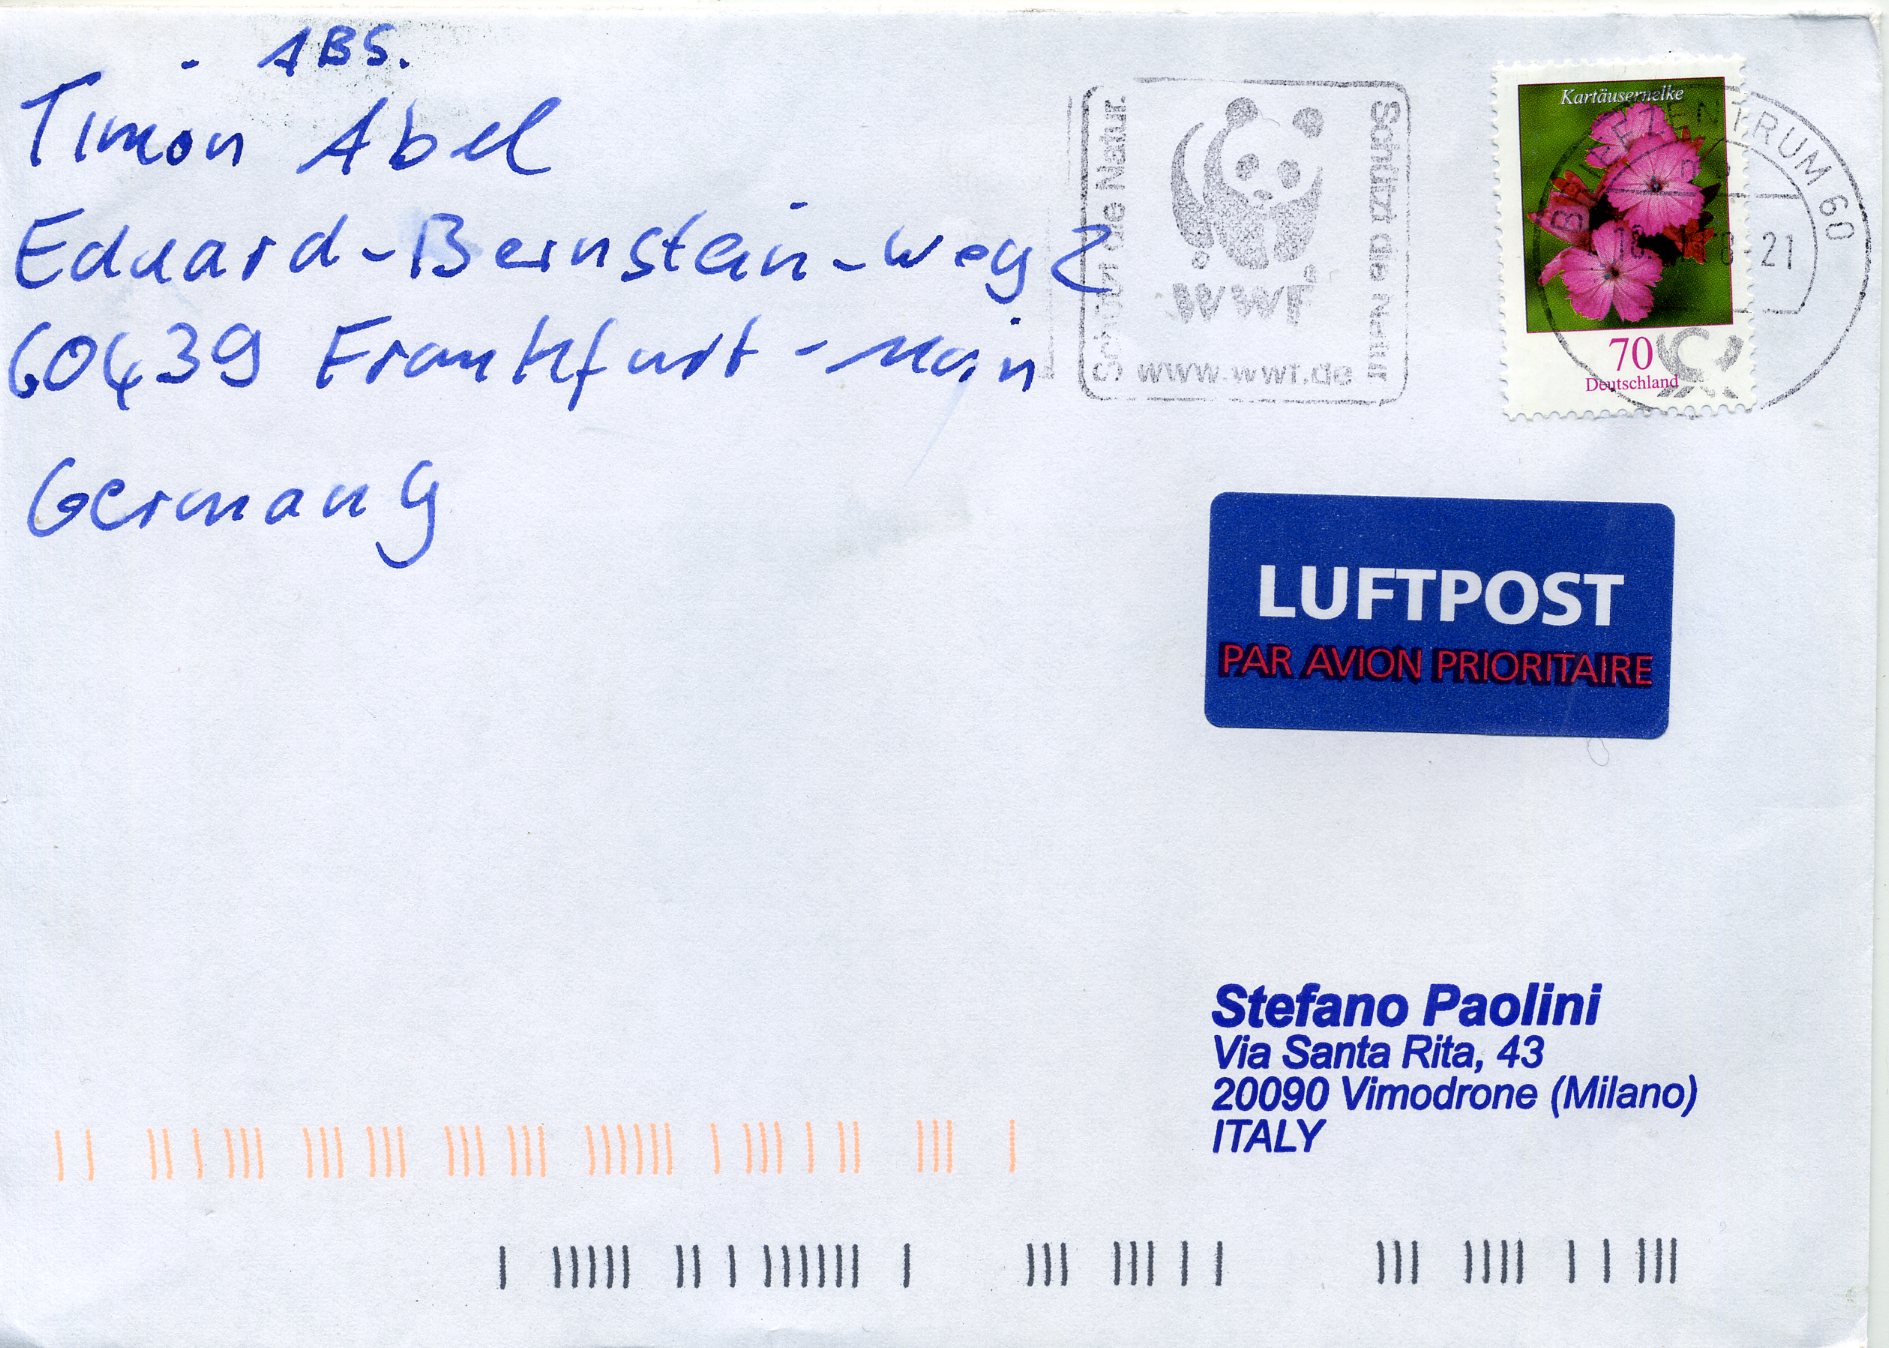 ABS.
Timon Abel
Eduard-Bernstein-Weg 2
60439 Frankfurt-Main
Germany
Schützt die Natur
WWF
www.wwf.de
Schützt die Natur
Kartäusernelke
70
Deutschland
BRIEFZENTRUM 60
21
LUFTPOST
PAR AVION PRIORITAIRE
Stefano Paolini
Via Santa Rita, 43
20090 Vimodrone (Milano)
ITALY